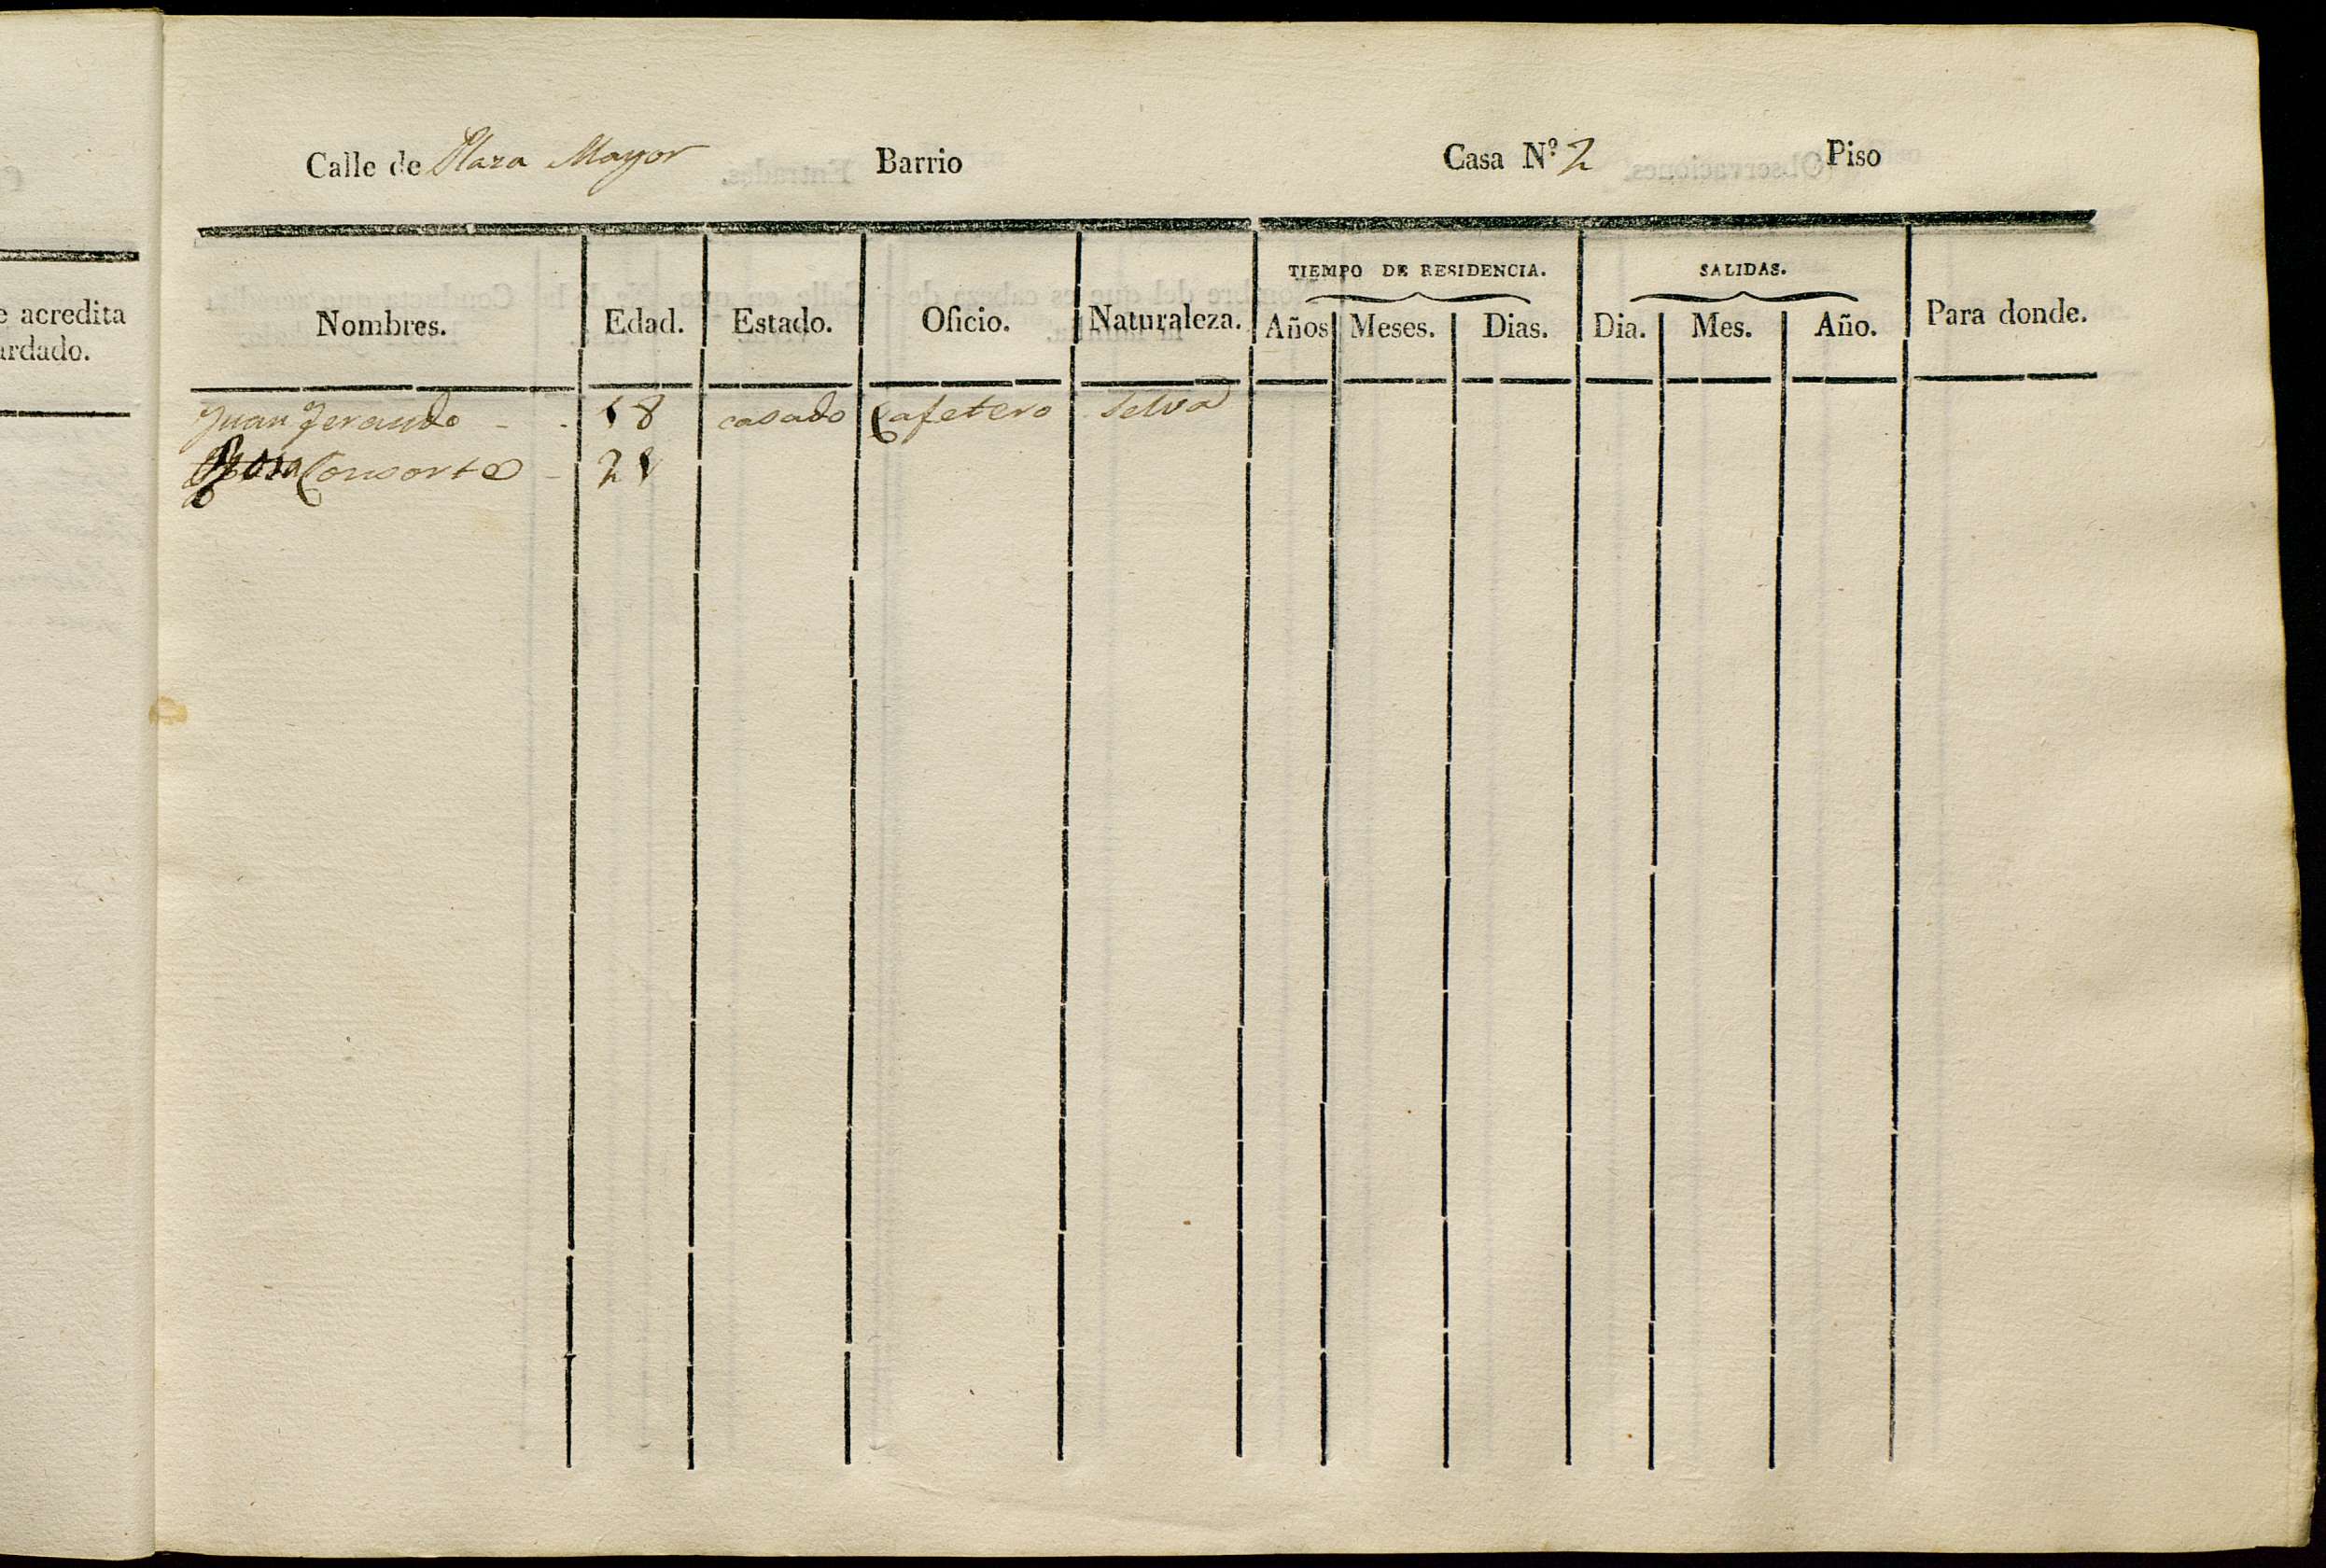 e acredita
ardado.
Calle de Plaza Mayor Barrio Casa N.º 2 Piso
TIEMPO DE RESIDENCIA. SALIDAS.
Nombres. Edad. Estado. Oficio. Naturaleza. Años Meses. Dias. Dia. Mes. Año. Para donde.
Juan - - 18 casado Cafetero Selva
Rosa Consorte - 21